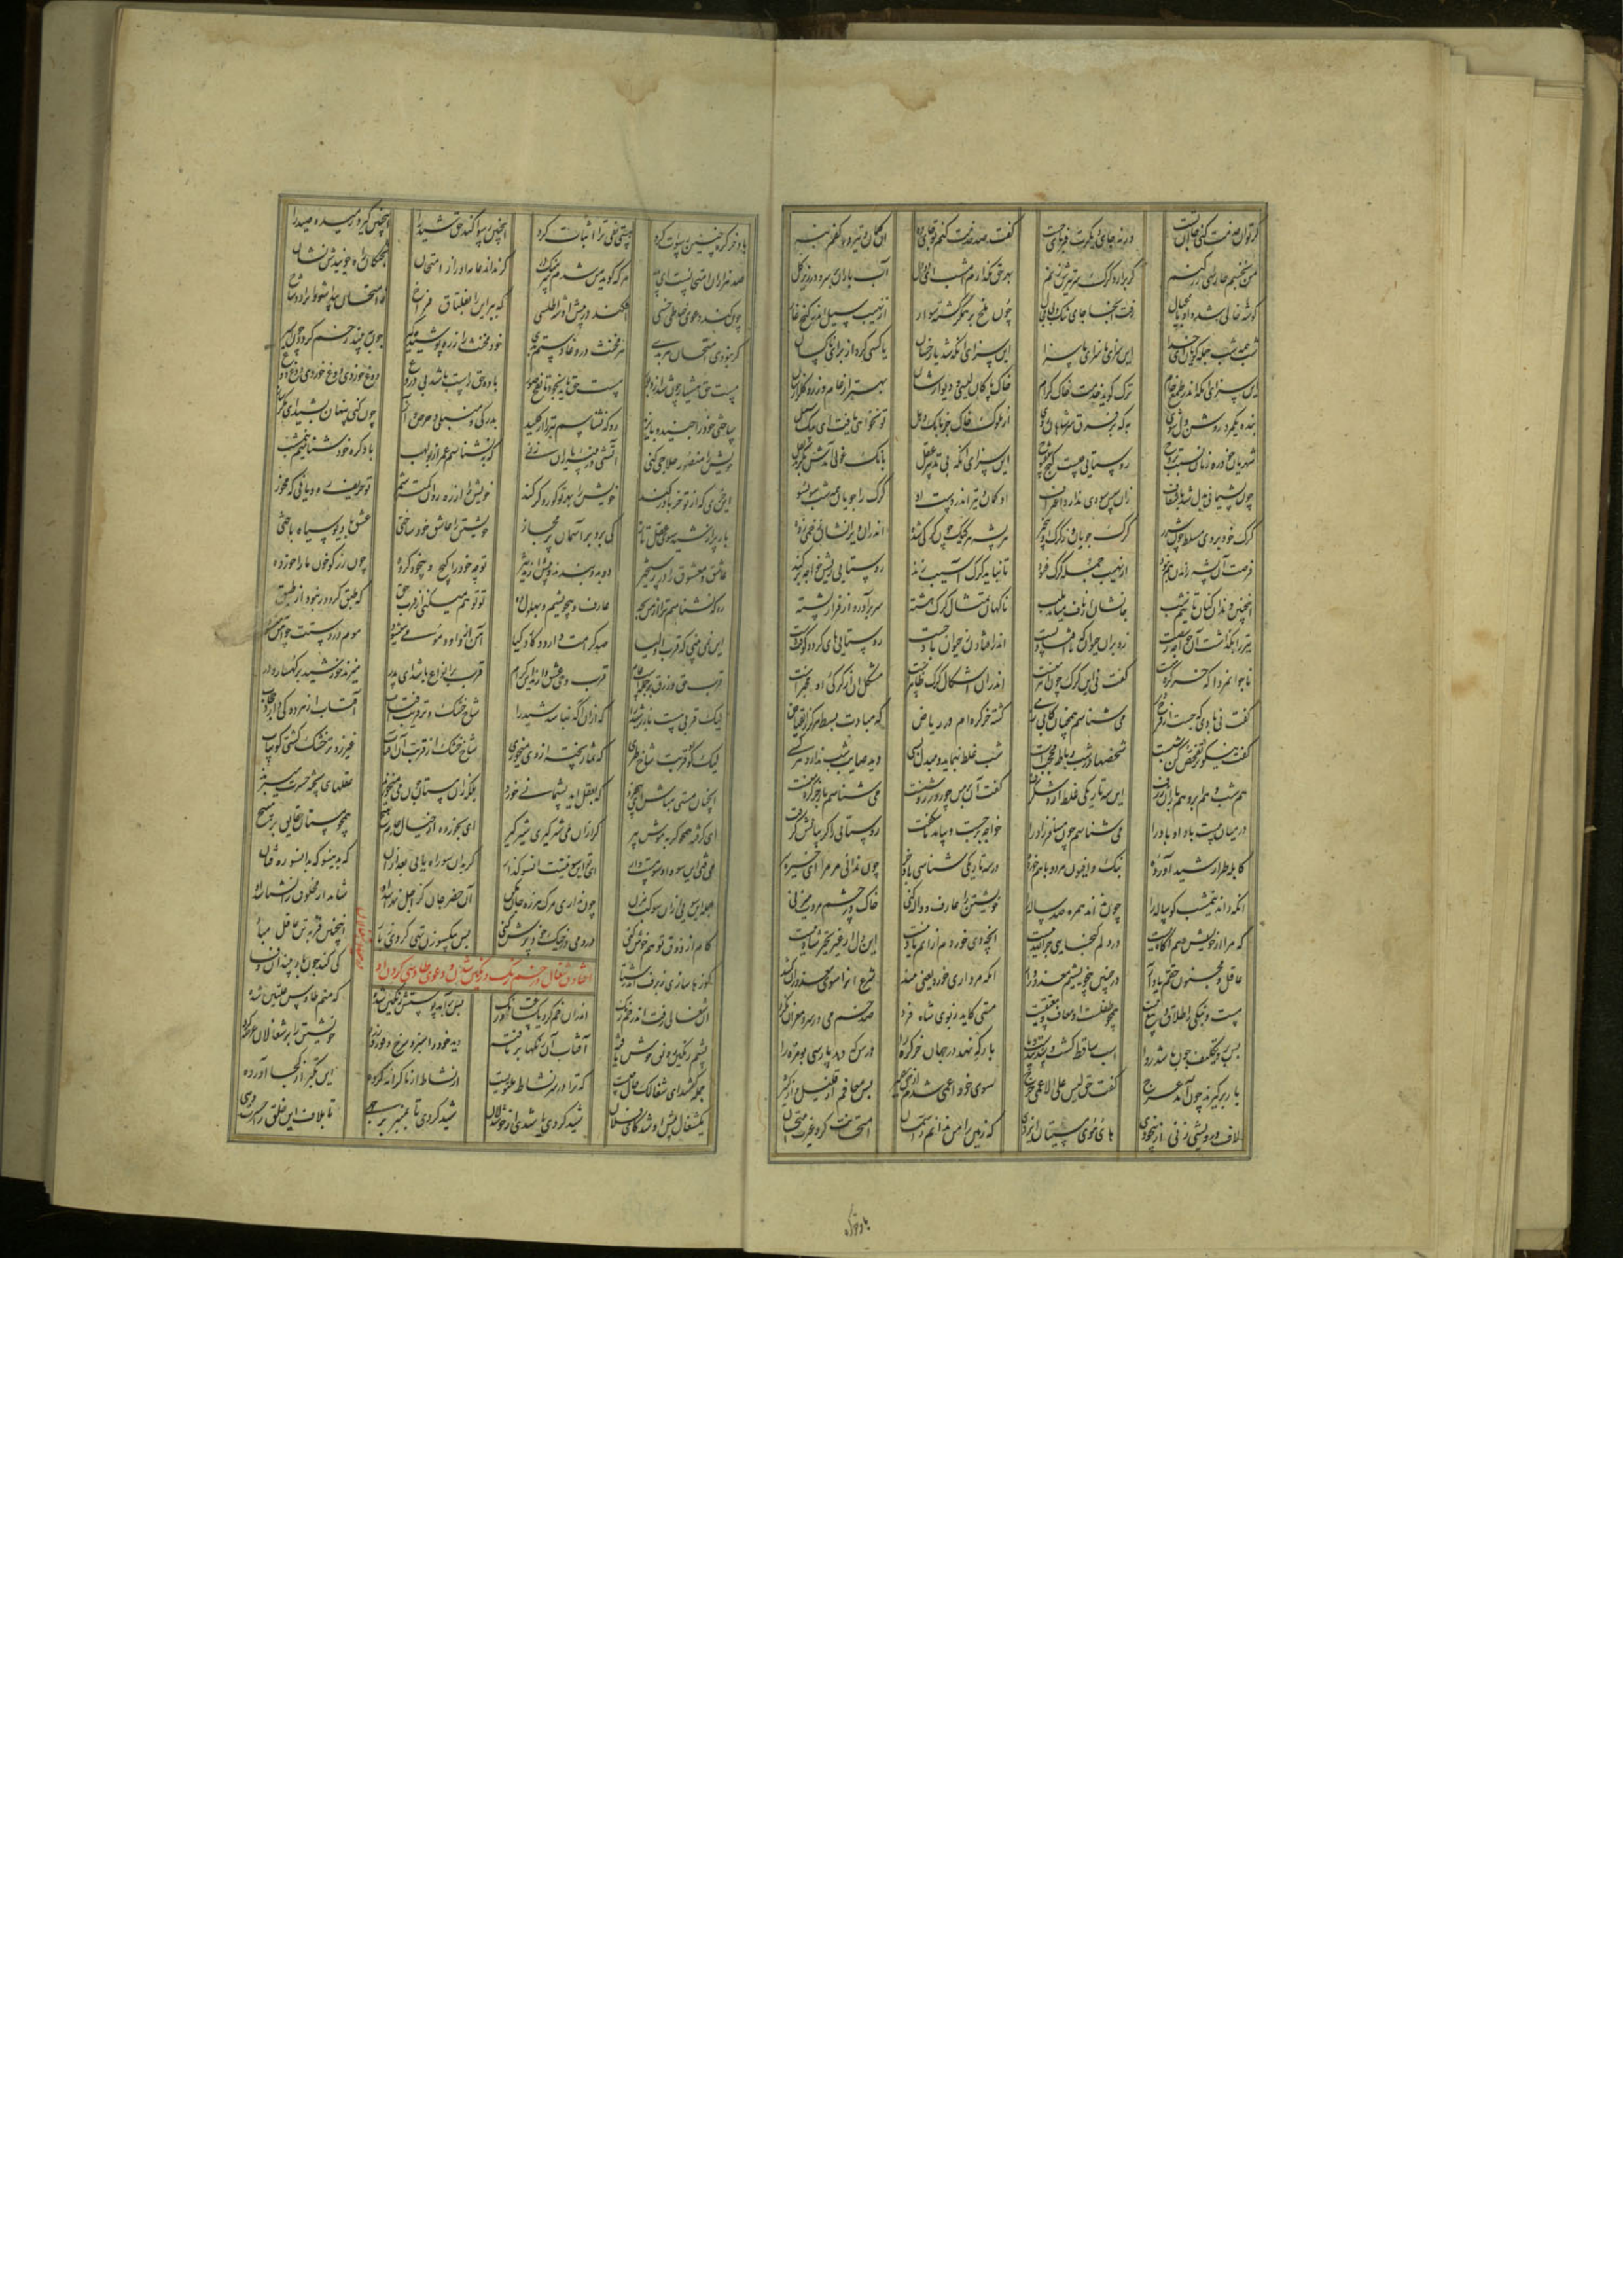 گر توان خدمت کنی جا آن تست ورنه جای دیگری فرمای جست گفت صد خدمت کنم تو جای ده آن کمان و تیر در کفم بنه
من نخسبم حارسی رز کنم گر برارد گرگ سر تیرش زنم بهر حق مگذارم امشب ای دو دل آب باران بر سر و در زیر گل
گوشه خالی شد و او با عیال رفت آنجا جای تنگ و بی مجال چون ملخ بر همدگر گشته سوار از نهیب سیل اندر کنج غار
شب همه شب جمله گویان ای خدا این سزای ما سزای ما سزا این سزای آنکه شد یار خسان یا کسی کرد از برای ناکسان
این سزای آنکه اندر طمع خام ترک گوید خدمت خاک کرام خاک پاکان لیسی و دیوارشان بهتر از عام و رز و گلزارشان
بنده یکمرد روشن دل شوی به که بر فرق سر شاهان روی از ملوک خاک جز بانگ دهل تو نخواهی یافت ای پیک سبل
شهریان خود ره زنان نسبت بروح روستایی چیست گیج و بی فتوح این سزای آنکه بی تدبیر عقل بانگ غولی آمدش بگزید نقل
چون پشیمانی ز دل شد تا شغاف زان سپس سودی ندارد اعتراف او کمان و تیر اندر دست او گرگ را جویان همه شب سو بسو
گرگ خود بر وی مسلط چون شرر گرگ جویان و ز گرگ او بیخبر هر پشه هر کیک چون گرگی شده اندران ویرانشان زخمی زده
فرصت آن پشه راندن هم نبود از نهیب حمله گرگ عنود تا نباید گرگ آسیبی زند روستایی ریش خواجه برکند
اینچنین دندان کنان تا نیم شب جانشان از ناف میامد بلب ناگهان تمثال گرگ هشته سر برآورد از فراز پشته
تیر را بگذاشت آن خواجه ز شست زد بران حیوان که تا افتاد پست اندر افتادن ز حیوان باد جست روستایی های کرد و کوفت دست
ناجوانمردا که خر کره منست گفت نی این گرگ چون آهرمنست اندران اشکال گرگی ظاهرست شکل او از گرگی او مخبرست
گفت نی بادی که جست از فرج وی می شناسم همچنان کابی ز می کشته خر کره ام در ریاض که مبادت بسط هرگز ز انقباض
گفت نیکوتر تفحص کن شبست شخصها در شب ز ناظر محجبست شب غلط بنماید و مبدل بسی دید صایب شب ندارد هر کسی
هم شب و هم ابر و هم باران ژرف این سه تاریکی غلط آرد شگرف گفت آن بر من چو روز روشنست می شناسم باد خر کره منست
در میان بیست باد او باد را می شناسم چون مسافر زاد را خواجه برجست و بیامد ناشکفت روستایی را گریبانش گرفت
کابله طرار شید آورده بنگ و افیون هر دو با هم خورده در سه تاریکی شناسی باد خر چون ندانی مر مرا ای خیره سر
آنکه داند نیمشب گوساله را چون نداند همره ده ساله را خویشتن را عارف و واله کنی خاک در چشم مروت میزنی
که مرا از خویش هم آگاه نیست در دلم گنجای جز الله نیست آنچه دی خوردم از آنم یاد نیست این دل از غیر تحیر شاد نیست
عاقل و مجنون حقم یاد آر در چنین بیخویشیم معذور دار آنکه مرداری خورد یعنی نبیذ شرع او را سوی معذوران کشید
مست و بنگی را طلاق و بیع نیست همچو طفلست او معاف و معتقیست مستی کاید ز بوی شاه فرد صد خم می در سر و مغز آن نکرد
پس برو تکلیف چون باشد روا اسب ساقط گشت و شد بی دست و پا بار که نهد در جهان خر کره را درس که دهد پارسی بومره را
بار برگیرند چون آمد عرج گفت حق لیس علی الاعمی حرج سوی خود اعمی شدم از حق بصیر پس معافم از قلیل و از کثیر
لاف درویشی زنی و بیخودی های هوی مستیان ایزدی که زمین را من ندانم ز آسمان امتحانت کرد غیرت امتحان
باد خر کره چنین رسوات کرد هستی نفی ترا اثبات کرد اینچنین رسوا کند حق شید را اینچنین گیرد رمیده صید را
صد هزاران امتحانست ای پدر هر که گوید من شدم سرهنگ در گر نداند عامه او را ز امتحان پختگان راه جویندش نشان
چون کند دعوی خیاطی خسی افکند در پیش او شه اطلسی که ببر این را بغلتاق فراخ ز امتحان پیدا شود او را دو شاخ
گر نبودی امتحان هر بدی هر مخنث در وغا رستم بدی خود مخنث را زره پوشیده گیر چون ببیند زخم گردد چون اسیر
مست حق هشیار چون شد از دبور مست حق ناید بخود تا نفخ صور باده حق راست باشد بی دروغ دوغ خوردی دوغ خوردی دوغ دوغ
ساختی خود را جنید و بایزید رو که نشناسم تبر را از کلید بدرگی و منبلی و حرص و آز چون کنی پنهان بشید ای مکرساز
خویش را منصور حلاجی کنی آتشی در پنبه یاران زنی که بنشناسم عمر از بولهب باد کره خود شناسم نیم شب
ای خری که از تو خر باور کند خویش را بهر تو کور و کر کند خویش را از ره روان کمتر شمر تو حریف
باز پر از شید سوی عقل تاز کی پرد بر آسمان پر مجاز خویشتن را عاشق خود ساختی عشق با دیو سیاه باختی
عاشق و معشوق را در رستخیز دو بدو بندند و پیش آرند تیز تو چه خود را گیج و بیخود کرده خون رز کو خون ما را خورده
رو که نشناسم ترا از من بجه عارف و بیخویشم و بهلول ده تو توهم میکنی از قرب حق که طبق گر دور نبود از طبق
این نمی بینی که قرب اولیا صد کرامت دارد و کار و کیا آهن از داود مومی میشود موم در دستت چو آهن
قرب حق و رزق بر جمله است عام قرب وحی عشق دارند این کرام قرب بر انواع باشد ای پدر میزند خورشید بر کهسار و زر
لیک قربی هست با زر شید را که ازان آگه نباشد بید را شاخ خشک و تر قریب آفتاب آفتاب از هر دو کی دارد حجاب
لیک کو آن قربت شاخ طری که ثمار پخته از وی میخوری شاخ خشک از قربت آن آفتاب غیر زوتر خشک گشتن گو بیاب
آنچنان مستی مباش ای بیخرد که بعقل آید پشیمانی خورد بلک ازان مستان که چون می میخورند عقلهای پخته حسرت میبرند
ای گرفته همچو گربه موش پیر گر ازان می شیرگیری شیر گیر ای بخورده از خیال جام هیچ همچو مستان حقایق بر مپیچ
می فتی این سو و آن سو مست وار ای تو این سو نیستت زانسو گذار گر بدان سو راه یابی بعد ازان که بدینسو که بدانسو سر فشان
جمله این سویی ازان سو گپ مزن چون نداری مرگ هرزه جان مکن آن خضر جان کز اجل نهراسد او شاید ار مخلوق را نشناسد او
کام از ذوق توهم خوش کنی در دمی در خیک خود پرش کنی پس بیک سوزن تهی گردی ز باد اینچنین فربه تن عاقل مباد
کوزه ها سازی ز برف اندر شتا کی کند چون آب بیند آن وفا
افتادن شغال در خم رنگ و رنگین شدن و دعوی طاوسی کردن او
آن شغالی رفت اندر خم رنگ اندران خم کرد یک ساعت درنگ پس برآمد پوستش رنگین شده که منم طاوس علیین شده
پشم رنگین رونق خوش یافته آفتاب آن رنگها بر تافته دید خود را سبز و سرخ و بور و زرد خویشتن را بر شغالان عرضه کرد
جمله گفتند ای شغالک حال چیست که ترا در سر نشاط ملتویست از نشاط از ما کرانه کرده این تکبر از کجا آورده
یک شغالی پیش او شد کای فلان شید کردی یا شدی از خوشدلان شید کردی تا بمنبر بر جهی تا بلاف این خلق را حسرت دهی